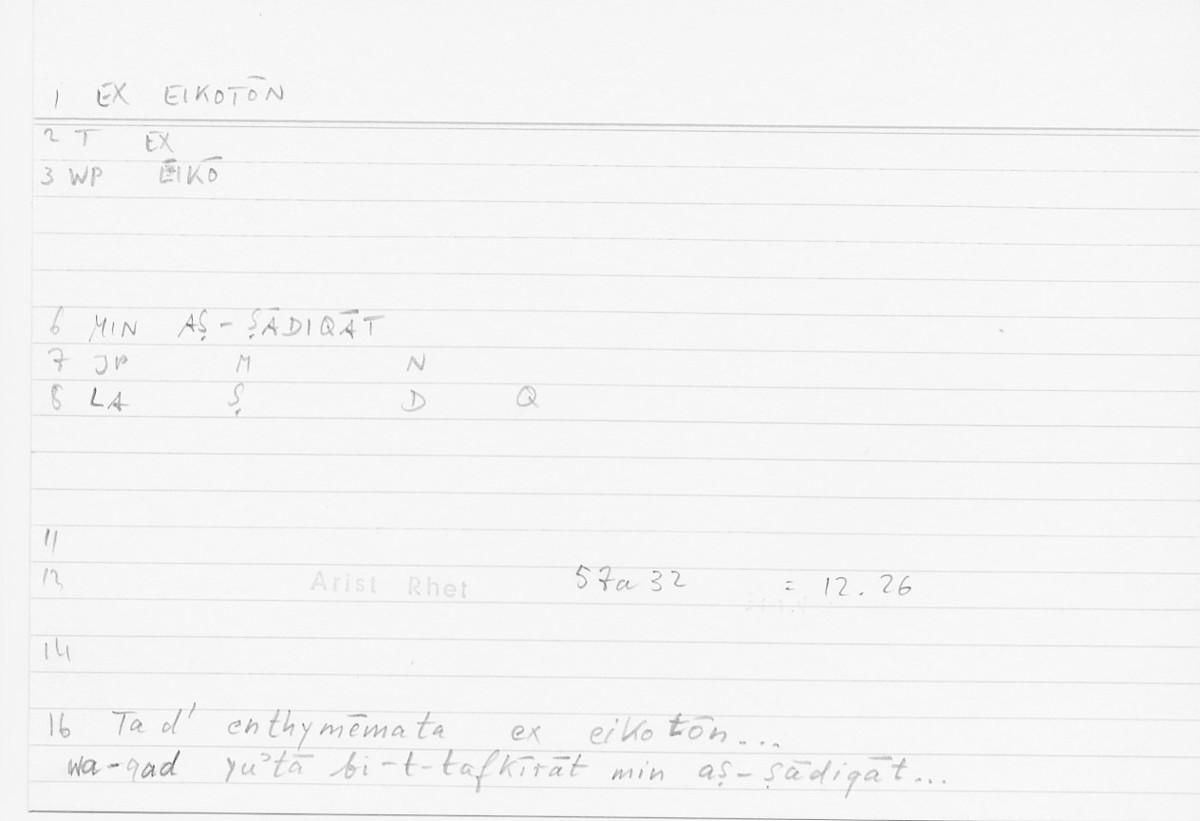 1 EX EIKOTŌN
2 T EX
3 WP EIKŌ
6 MIN AṢ-ṢĀDIQĀT
7 JP M N
8 LA Ṣ D Q
11
13 Arist Rhet 57a 32 = 12.26
14
16 Ta d' enthymēmata ex eikotōn...
wa-qad yuʾtā bi-t-tafkīrāt min aṣ-ṣādiqāt...